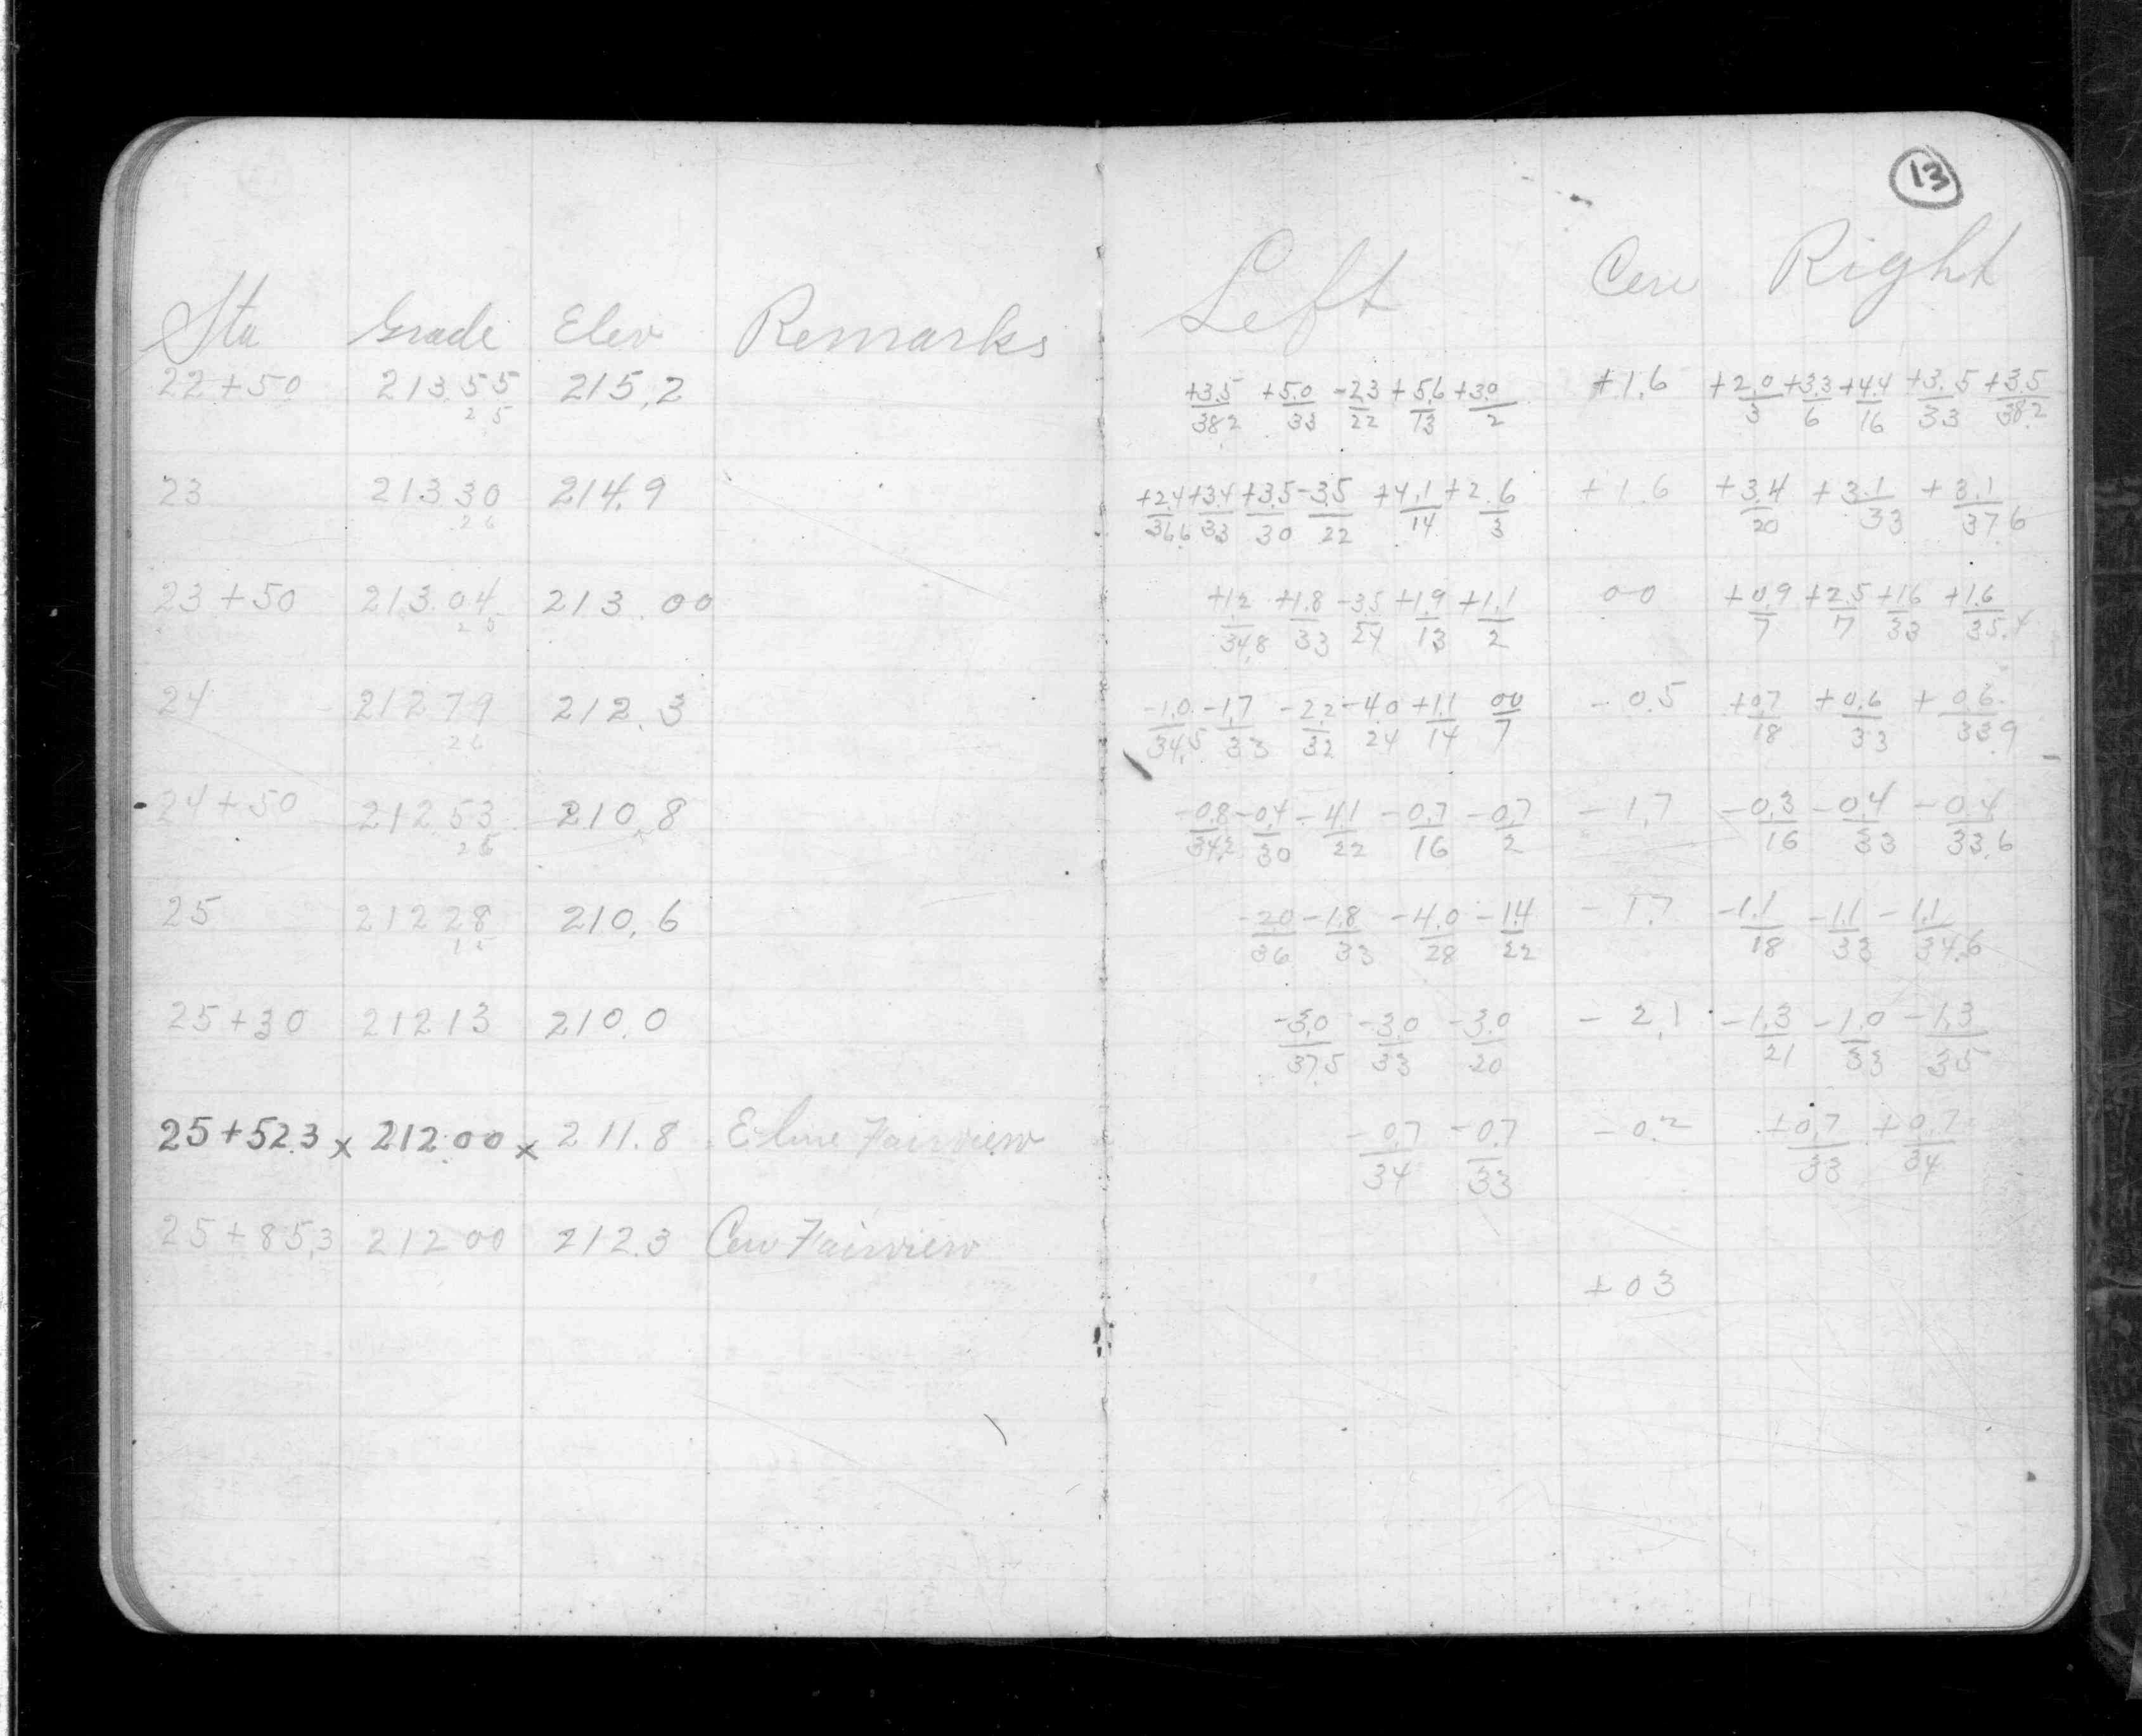 13
Sta Grade Elev Remarks Left Cen Right
22+50 213.55 215.2 +3.5/38.2 +5.0/33 -2.3/22 +5.6/13 +3.0/2 +1.6 +2.0/3 +3.3/6 +4.4/16 +3.5/33 +3.5/38.2
25
23 213.30 214.9 +2.4/36.6 +3.4/33 +3.5/30 -3.5/22 +4.1/14 +2.6/3 +1.6 +3.4/20 +3.1/33 +3.1/37.6
26
23+50 213.04 213.00 +1.2/34.8 +1.8/33 -3.5/24 +1.9/13 +1.1/2 0-0 +0.9/7 +2.5/17 +1.6/33 +1.6/35.4
25
24 212 79 212.3 -1.0/34.5 -1.7/33 -2.2/32 -4.0/24 +1.1/14 00/7 -0.5 +0.7/18 +0.6/33 +0.6/33.9
26
24+50 212 53 210.8 -0.8/34.2 -0.4/30 -4.1/22 -0.7/16 -0.7/2 -1.7 -0.3/16 -0.4/33 -0.4/33.6
25
25 212 28 210.6 -2.0/36 -1.8/33 -4.0/28 -1.4/22 -1.7 -1.1/18 -1.1/33 -1.1/34.6
15
25+30 212 13 210.0 -3.0/37.5 -3.0/33 -3.0/20 -2.1 -1.3/21 -1.0/33 -1.3/35
25+52.3 x 212.00 x 211.8 E line Fairview -0.7/34 -0.7/33 -0.2 +0.7/33 +0.7/34
25+85.3 212 00 212.3 Cen Fairview
+0 3